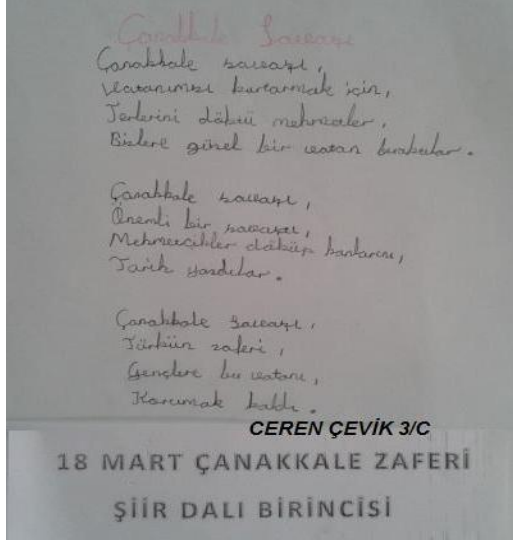 Çanakkale Savaşı
Çanakkale savaşı,
Vatanımızı kurtarmak için,
Terlerini döktü mehmetler,
Bizlere güzel bir vatan bıraktılar.
Çanakkale savaşı,
Önemli bir savaştı,
Mehmetçikler döküp kanlarını,
Tarih yazdılar.
Çanakkale savaşı,
Türkün zaferi,
Gençlere bu vatanı,
Korumak kaldı.
CEREN ÇEVİK 3/C
18 MART ÇANAKKALE ZAFERİ
ŞİİR DALI BİRİNCİSİ